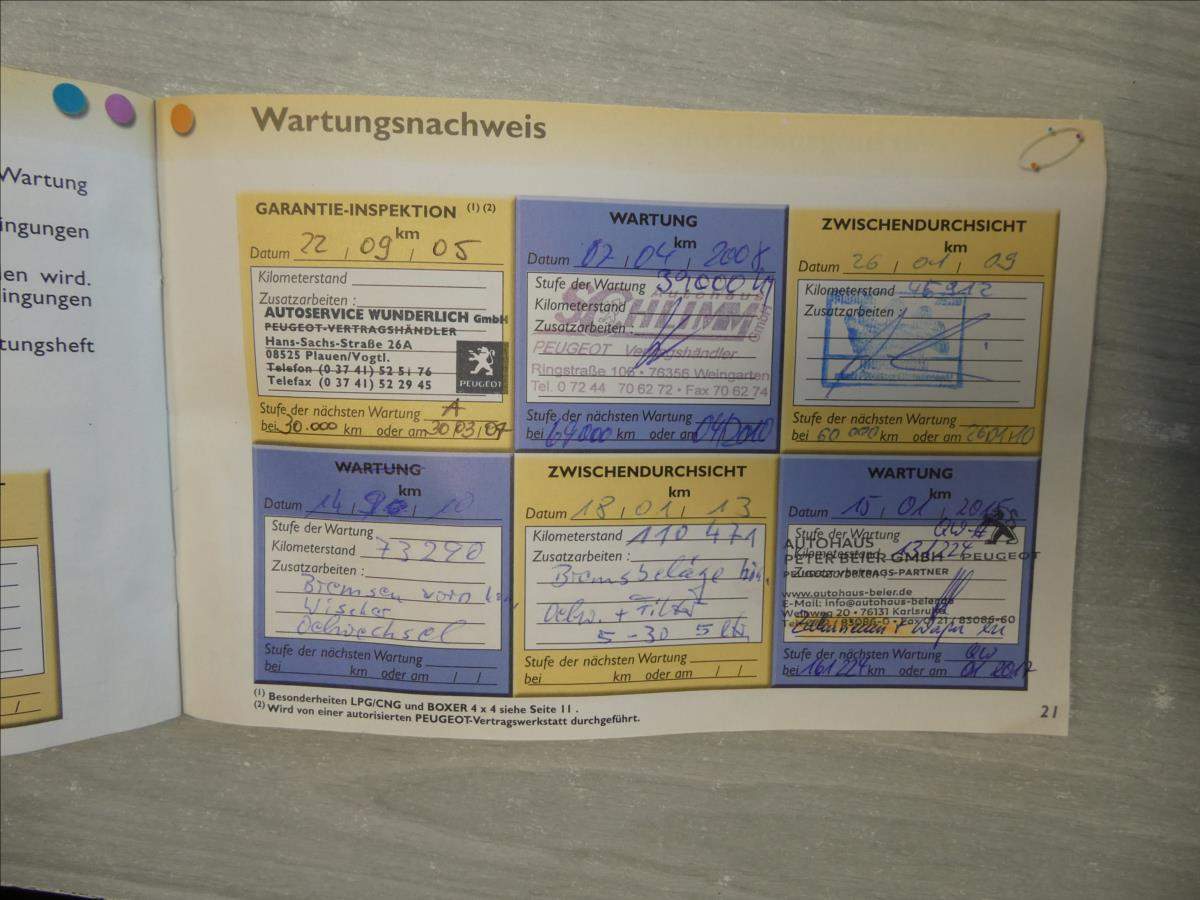 Wartung
ingungen
en wird.
ingungen
tungsheft
Wartungsnachweis
GARANTIE-INSPEKTION (1) (2)
km
Datum 22 , 09 , 05
Kilometerstand
Zusatzarbeiten :
AUTOSERVICE WUNDERLICH GmbH
PEUGEOT-VERTRAGSHÄNDLER
Hans-Sachs-Straße 26A
08525 Plauen/Vogtl.
Telefon (0 37 41) 52 51 76
Telefax (0 37 41) 52 29 45
PEUGEOT
Stufe der nächsten Wartung A
bei 30.000 km oder am 30,03,07
WARTUNG
km
Datum 07 , 04 , 2008
Stufe der Wartung 39000
Kilometerstand
Zusatzarbeiten :
SCHUMM
GmbH
PEUGEOT Vertragshändler
Ringstraße 106 • 76356 Weingarten
Tel. 0 72 44 70 62 72 • Fax 70 62 74
Stufe der nächsten Wartung
bei 69000 km oder am 04/2010
ZWISCHENDURCHSICHT
km
Datum 26 , 01 , 09
Kilometerstand 46912
Zusatzarbeiten :
Stufe der nächsten Wartung
bei 60 000 km oder am 26,01,10
WARTUNG
km
Datum 14 , , 10
Stufe der Wartung
Kilometerstand 73290
Zusatzarbeiten :
Bremsen vorn
Wischer
Oelwechsel
Stufe der nächsten Wartung
bei km oder am / /
ZWISCHENDURCHSICHT
km
Datum 18 , 01 , 13
Kilometerstand 110 471
Zusatzarbeiten :
Bremsbeläge hin.
Oelw. + Filter
5-30 5 ltr
Stufe der nächsten Wartung
bei km oder am / /
WARTUNG
km
Datum 15 , 01 , 2015
Stufe der Wartung
Kilometerstand 131224
Zusatzarbeiten :
AUTOHAUS
PETER BEIER GMBH PEUGEOT
PEUGEOT VERTRAGS-PARTNER
www.autohaus-beier.de
E-Mail: info@autohaus-beier.de
Weinweg 20 • 76131 Karlsruhe
/ 83086-0 • Fax 0721 / 83086-60
Stufe der nächsten Wartung QW
bei 161224 km oder am 01 2017
(1) Besonderheiten LPG/CNG und BOXER 4 x 4 siehe Seite 11 .
(2) Wird von einer autorisierten PEUGEOT-Vertragswerkstatt durchgeführt.
21